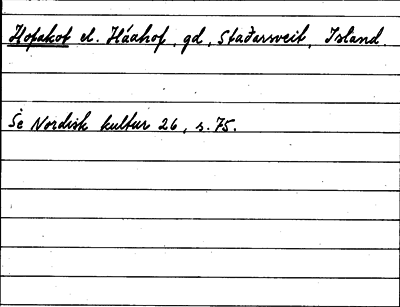 Hofakot el. Háahof, gd, Staðarsveit, Island.
Se Nordisk kultur 26, s. 75.